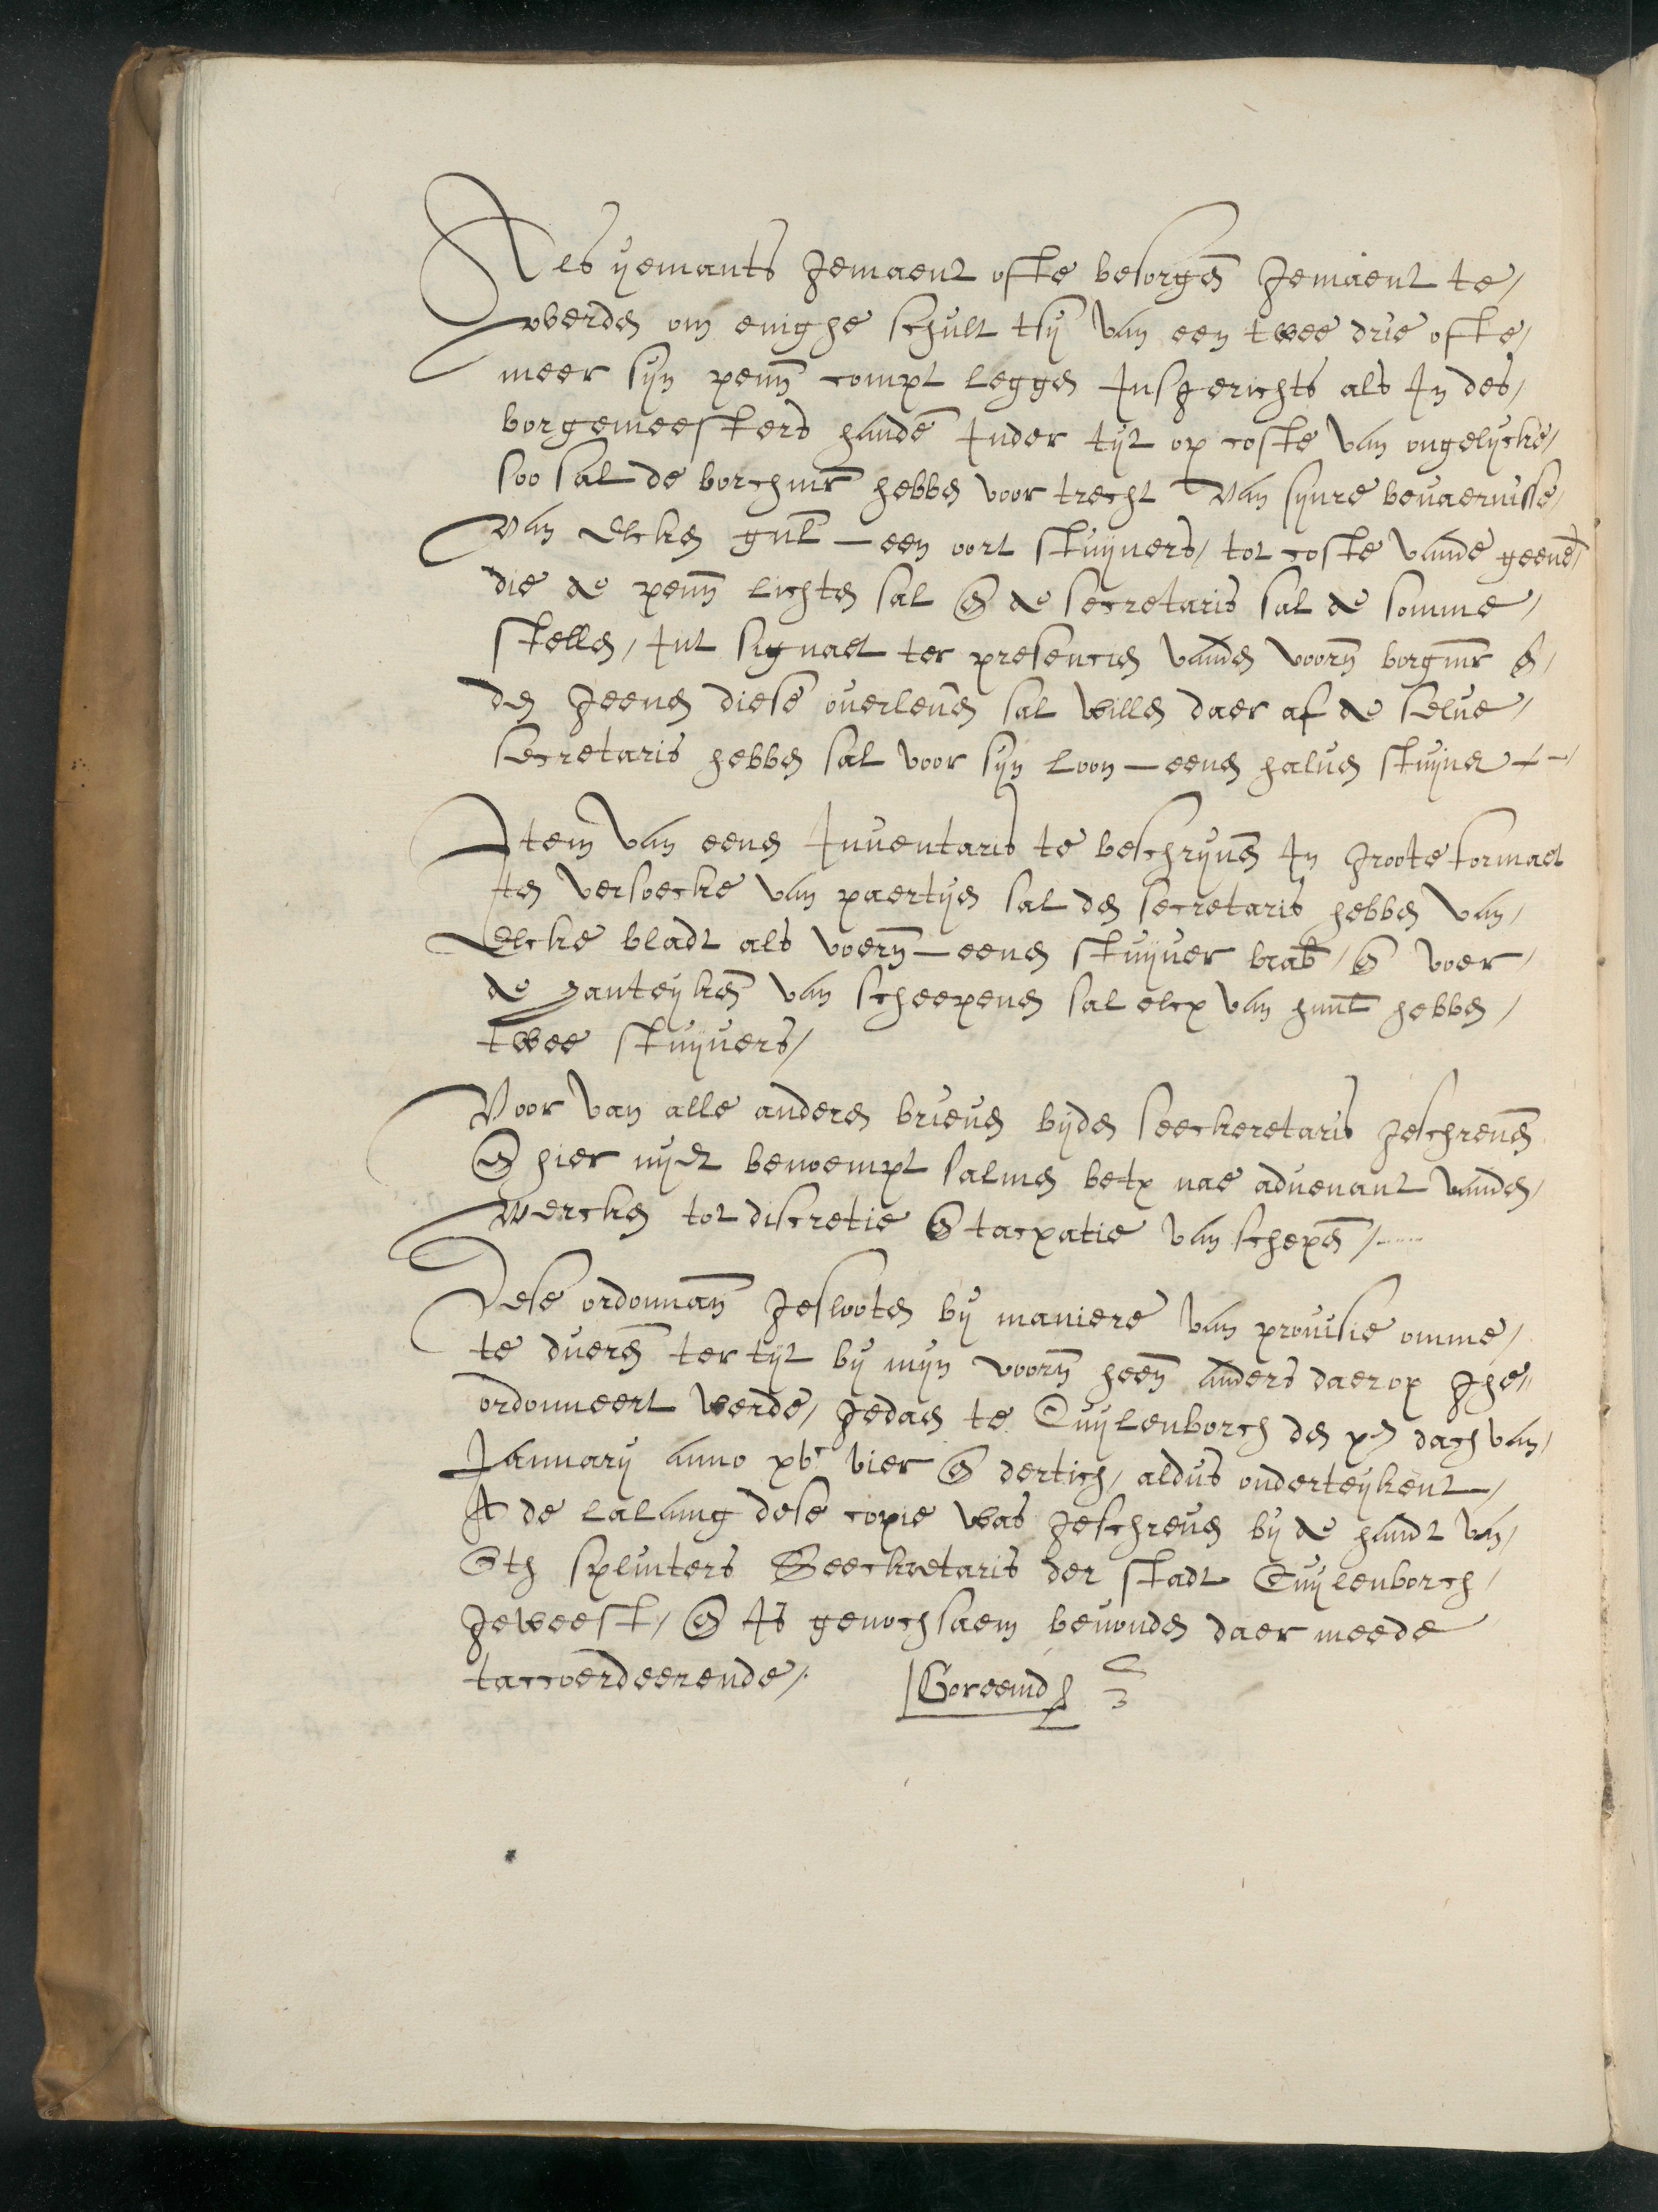 Als yemants gemaent ofte besorgen gemaent te
werden om enighe schult tsij van een twee drie ofte
meer sijn penn compt leggen Insgerichts als In des
borgemeesters handen Inder tijt op coste van ongelijcke
soo sal de borchmr hebben voor trecht van sijnre bevaernisse
van elcken gul — een oort stuijvers / tot coste vande geene
die de penn lichten sal en de secretaris sal de somme
stellen / Int signaet ter presencien vanden voorn borgmr en
den geenen diese overleven sal willen daer af de selve
secretaris hebben sal voor sijn loon — eenen halven stuijver
Item van eenen Inventaris te beschrijven In groote formaet
ten versoecke van paertijen sal den secretaris hebben van
elcke bladt als voern — eenen stuijver brab / en voer
de hanteyken van scheepenen sal elcx van hunl hebben
twee stuijvers /
Voor van alle anderen brieven bijden seeckeretaris geschreven
en hier nyet benoempt salmen betx nae advenant vanden
wercken tot discretie en tacxatie van schepen /
Dese ordonnan geslooten bij maniere van provisie omme
te dueren ter tijt bij mijn voorn heen anders daerop ghe„
ordonneert werde / gedaen te Cuijlenborch den xen dach van
January anno xvc vier en dertich / aldus onderteykent
A de lalaing dese copie was geschreven bij de handt van
Oth splinters Seeckretaris der stadt Cuijlenborch
geweest / en Is genochsaem bevonden daer meede
taccoerdeerende /